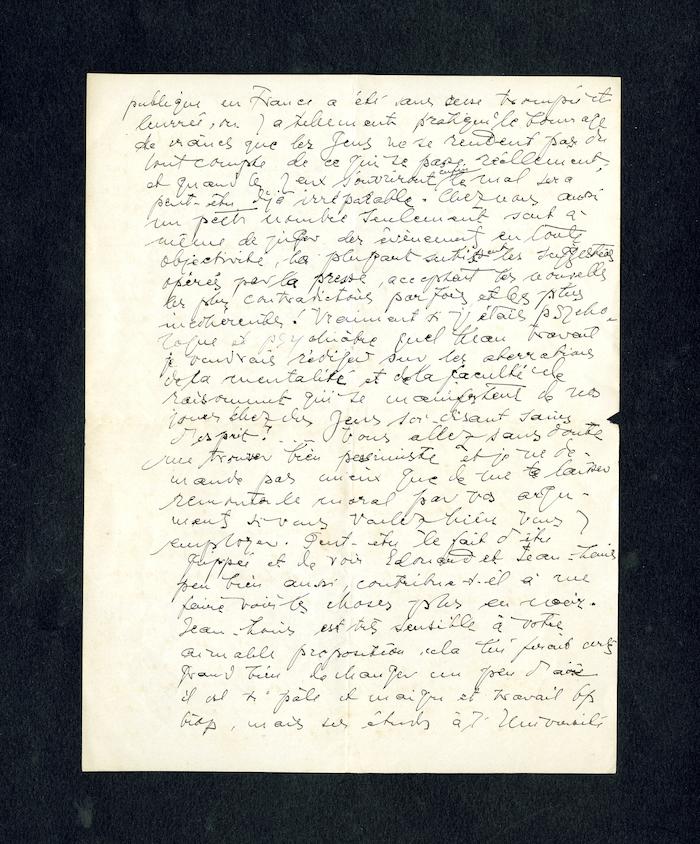 publique en France a été sans cesse trompée et
leurrée, on y a tellement pratiqué le bourrage
de crânes que les gens ne se rendent pas du
tout compte de ce qui se passe réellement
et quand les yeux s'ouvriront enfin le mal sera
peut-être déjà irréparable. Chez nous aussi
un petit nombre seulement sont à
même de juger des évènements en toute
objectivité, la plupart subissent les suggestions
opérées par la presse, acceptent les nouvelles
les plus contradictoires parfois et les plus
incohérentes! Vraiment si j'étais psycho-
logue et psychiâtre quel beau travail
je voudrais rédiger sur les aberrations
de la mentalité et de la faculté de
raisonnement qui se manifestent de nos
jours chez des gens soi-disant sains
d'esprit! .... Vous allez sans doute
me trouver bien pessimiste et je ne de-
mande pas mieux que de me laisser
remonter le moral par vos argu-
ments si vous voulez bien vous y
employer. Peut-être le fait d'être
grippée et de voir Edouard et Jean-Louis
peu bien aussi contribue-t-il à me
faire voir les choses plus en noir.
Jean-Louis est très sensible à votre
aimable proposition, cela lui ferait certes
grand bien de changer un peu d'air
il est si pâle et maigre et travail bp
trop, mais ses études à l'Université